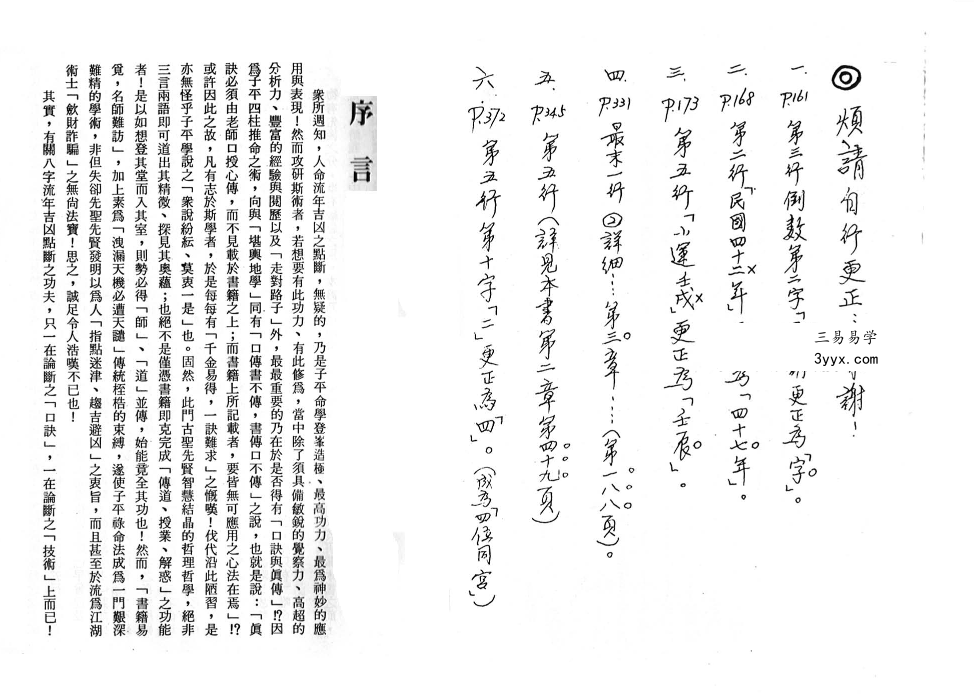 ◎煩請自行更正：謝！
一. P.161 第三行倒數第二字「更正為「字」。
二. P.168 第二行「民國四十二年」「四十七年」。
三. P.173 第五行「小運壬戌」更正為「壬辰」。
四. P.331 最末一行②詳細…第三章……（第一八八頁）。
五. P.345 第五行（詳見本書第二章第四十九頁）
六. P.372 第五行第十字「二」更正為「四」。（成為「四伍同宮」）
三易易学
3yyx.com
序言
衆所週知，人命流年吉凶之點斷，無疑的，乃是子平命學登峯造極、最高功力、最爲神妙的應
用與表現！然而攻研斯術者，若想要有此功力、有此修爲，當中除了須具備敏銳的覺察力、高超的
分析力、豐富的經驗與閱歷以及「走對路子」外，最最重要的乃在於是否得有「口訣與眞傳」!?因
爲子平四柱推命之術，向與「堪輿地學」同有「口傳書不傳，書傳口不傳」之說，也就是說：「眞
訣必須由老師口授心傳，而不見載於書籍之上；而書籍上所記載者，要皆無可應用之心法在焉」!?
或許因此之故，凡有志於斯學者，於是每每有「千金易得，一訣難求」之慨嘆！伐代沿此陋習，是
亦無怪乎子平學說之「衆說紛紜、莫衷一是」也。固然，此門古聖先賢智慧結晶的哲理哲學，絕非
三言兩語即可道出其精微、探見其奧蘊；也絕不是僅憑書籍即克完成「傳道、授業、解惑」之功能
者！是以如想登其堂而入其室，則勢必得「師」、「道」並傳，始能竟全其功也！然而，「書籍易
覓，名師難訪」，加上素爲「洩漏天機必遭天譴」傳統桎梏的束縛，遂使子平祿命法成爲一門艱深
難精的學術，非但失卻先聖先賢發明以爲人「指點迷津、趨吉避凶」之衷旨，而且甚至於流爲江湖
術士「歛財詐騙」之無尚法寶！思之，誠足令人浩嘆不已也！
其實，有關八字流年吉凶點斷之功夫，只一在論斷之「口訣」，一在論斷之「技術」上而已！